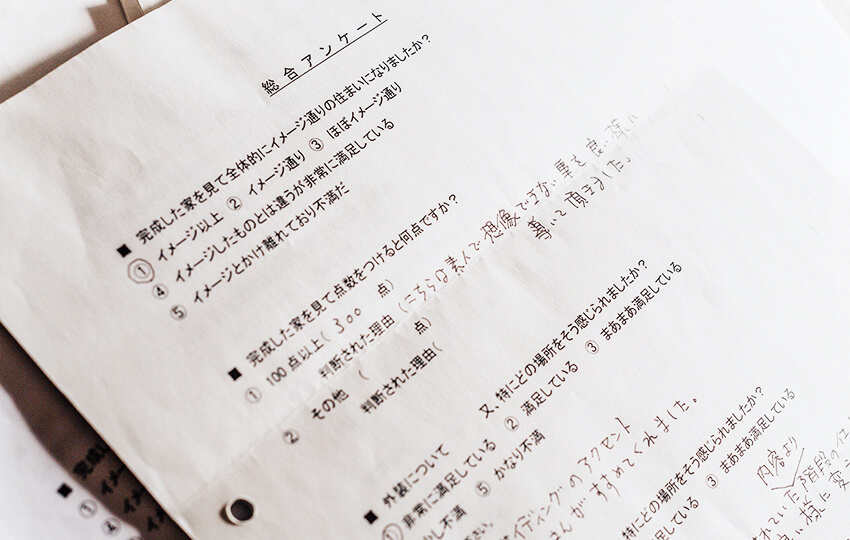 総合アンケート
■ 完成した家を見て全体的にイメージ通りの住まいになりましたか？
① イメージ以上 ② イメージ通り ③ ほぼイメージ通り
④ イメージしたものとは違うが非常に満足している
⑤ イメージとかけ離れており不満だ
■ 完成した家を見て点数をつけると何点ですか？
① 100点以上( 300 点)
判断された理由 (こちらは素人で想像できない事を良い様に
導いて頂きました。
② その他 ( 点)
判断された理由(
■ 外装について 又、特にどの場所をそう感じられましたか？
① 非常に満足している ② 満足している ③ まあまあ満足している
少し不満 ⑤ かなり不満
ださい。 イディングのアクセント
さんがすすめてくれました。
特にどの場所をそう感じられましたか？
している ③ まあまあ満足している
内容より
れていた階段の
様に変
■ 完成
① イメ
④ イメ
イメ